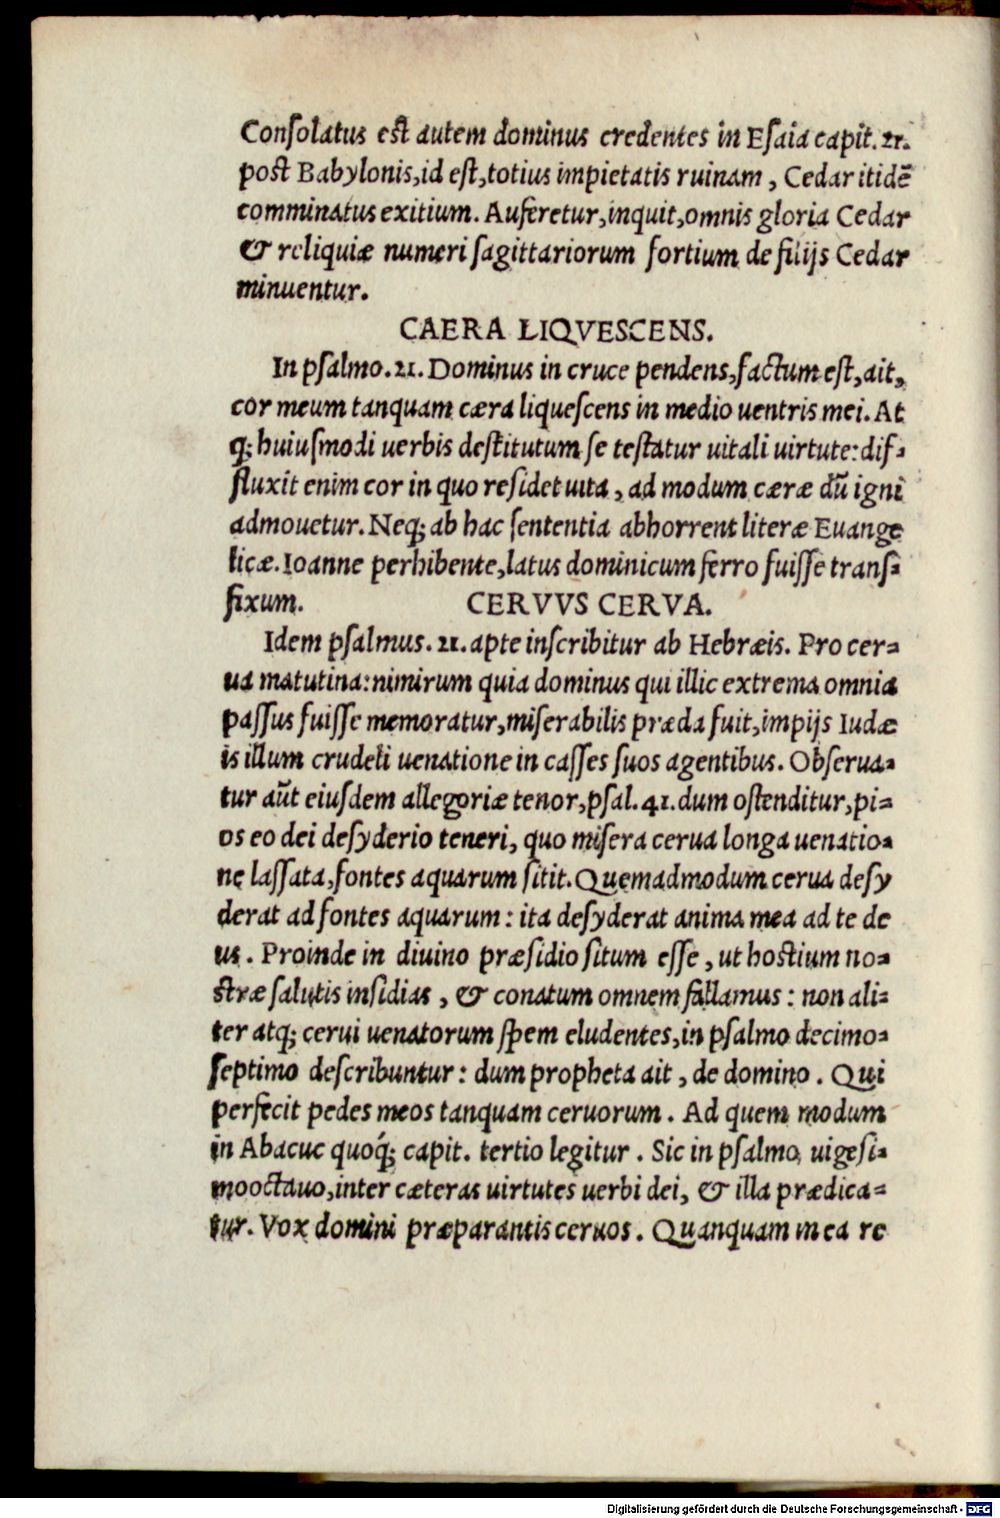 Conſolatus eſt autem dominus credentes in Eſaia capit. 21.
poſt Babylonis, id eſt, totius impietatis ruinam, Cedar itidē
comminatus exitium. Auferetur, inquit, omnis gloria Cedar
& reliquiæ numeri ſagittariorum fortium de filijs Cedar
minuentur.
CAERA LIQVESCENS.
In pſalmo. 21. Dominus in cruce pendens, factum eſt, ait,
cor meum tanquam cæra liqueſcens in medio uentris mei. At
q; huiuſmodi uerbis deſtitutum ſe teſtatur uitali uirtute: dif-
fluxit enim cor in quo reſidet uita, ad modum cæræ dū igni
admouetur. Neq; ab hac ſententia abhorrent literæ Euange
licæ. Ioanne perhibente, latus dominicum ferro fuiſſe tranſ-
fixum. CERVVS CERVA.
Idem pſalmus. 21. apte inſcribitur ab Hebræis. Pro cer-
ua matutina: nimirum quia dominus qui illic extrema omnia
paſſus fuiſſe memoratur, miſerabilis præda fuit, impijs Iudæ
is illum crudeli uenatione in caſſes ſuos agentibus. Obſerua-
tur aūt eiuſdem allegoriæ tenor, pſal. 41. dum oſtenditur, pi-
os eo dei deſyderio teneri, quo miſera cerua longa uenatio-
ne laſſata, fontes aquarum ſitit. Quemadmodum cerua deſy
derat ad fontes aquarum: ita deſyderat anima mea ad te de
us. Proinde in diuino præſidio ſitum eſſe, ut hoſtium no-
ſtræ ſalutis inſidias, & conatum omnem fallamus: non ali-
ter atq; cerui uenatorum ſpem eludentes, in pſalmo decimo-
ſeptimo deſcribuntur: dum propheta ait, de domino. Qui
perfecit pedes meos tanquam ceruorum. Ad quem modum
in Abacuc quoq́; capit. tertio legitur. Sic in pſalmo uigeſi-
mooctauo, inter cæteras uirtutes uerbi dei, & illa prædica-
tur. Vox domini præparantis ceruos. Quanquam mea re
Digitalisierung gefördert durch die Deutsche Forschungsgemeinschaft - DFG